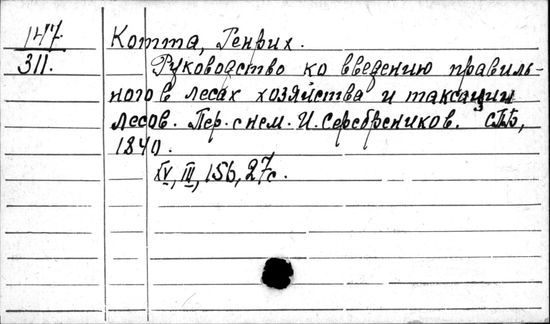 147
311.
Котта, Генрих.
Руководство ко введению правиль-
ного в лесах хозяйства и таксации
лесов. Пер. с нем. И. Серебреников. СПБ,
1840.
XV, III, 156, 27с.